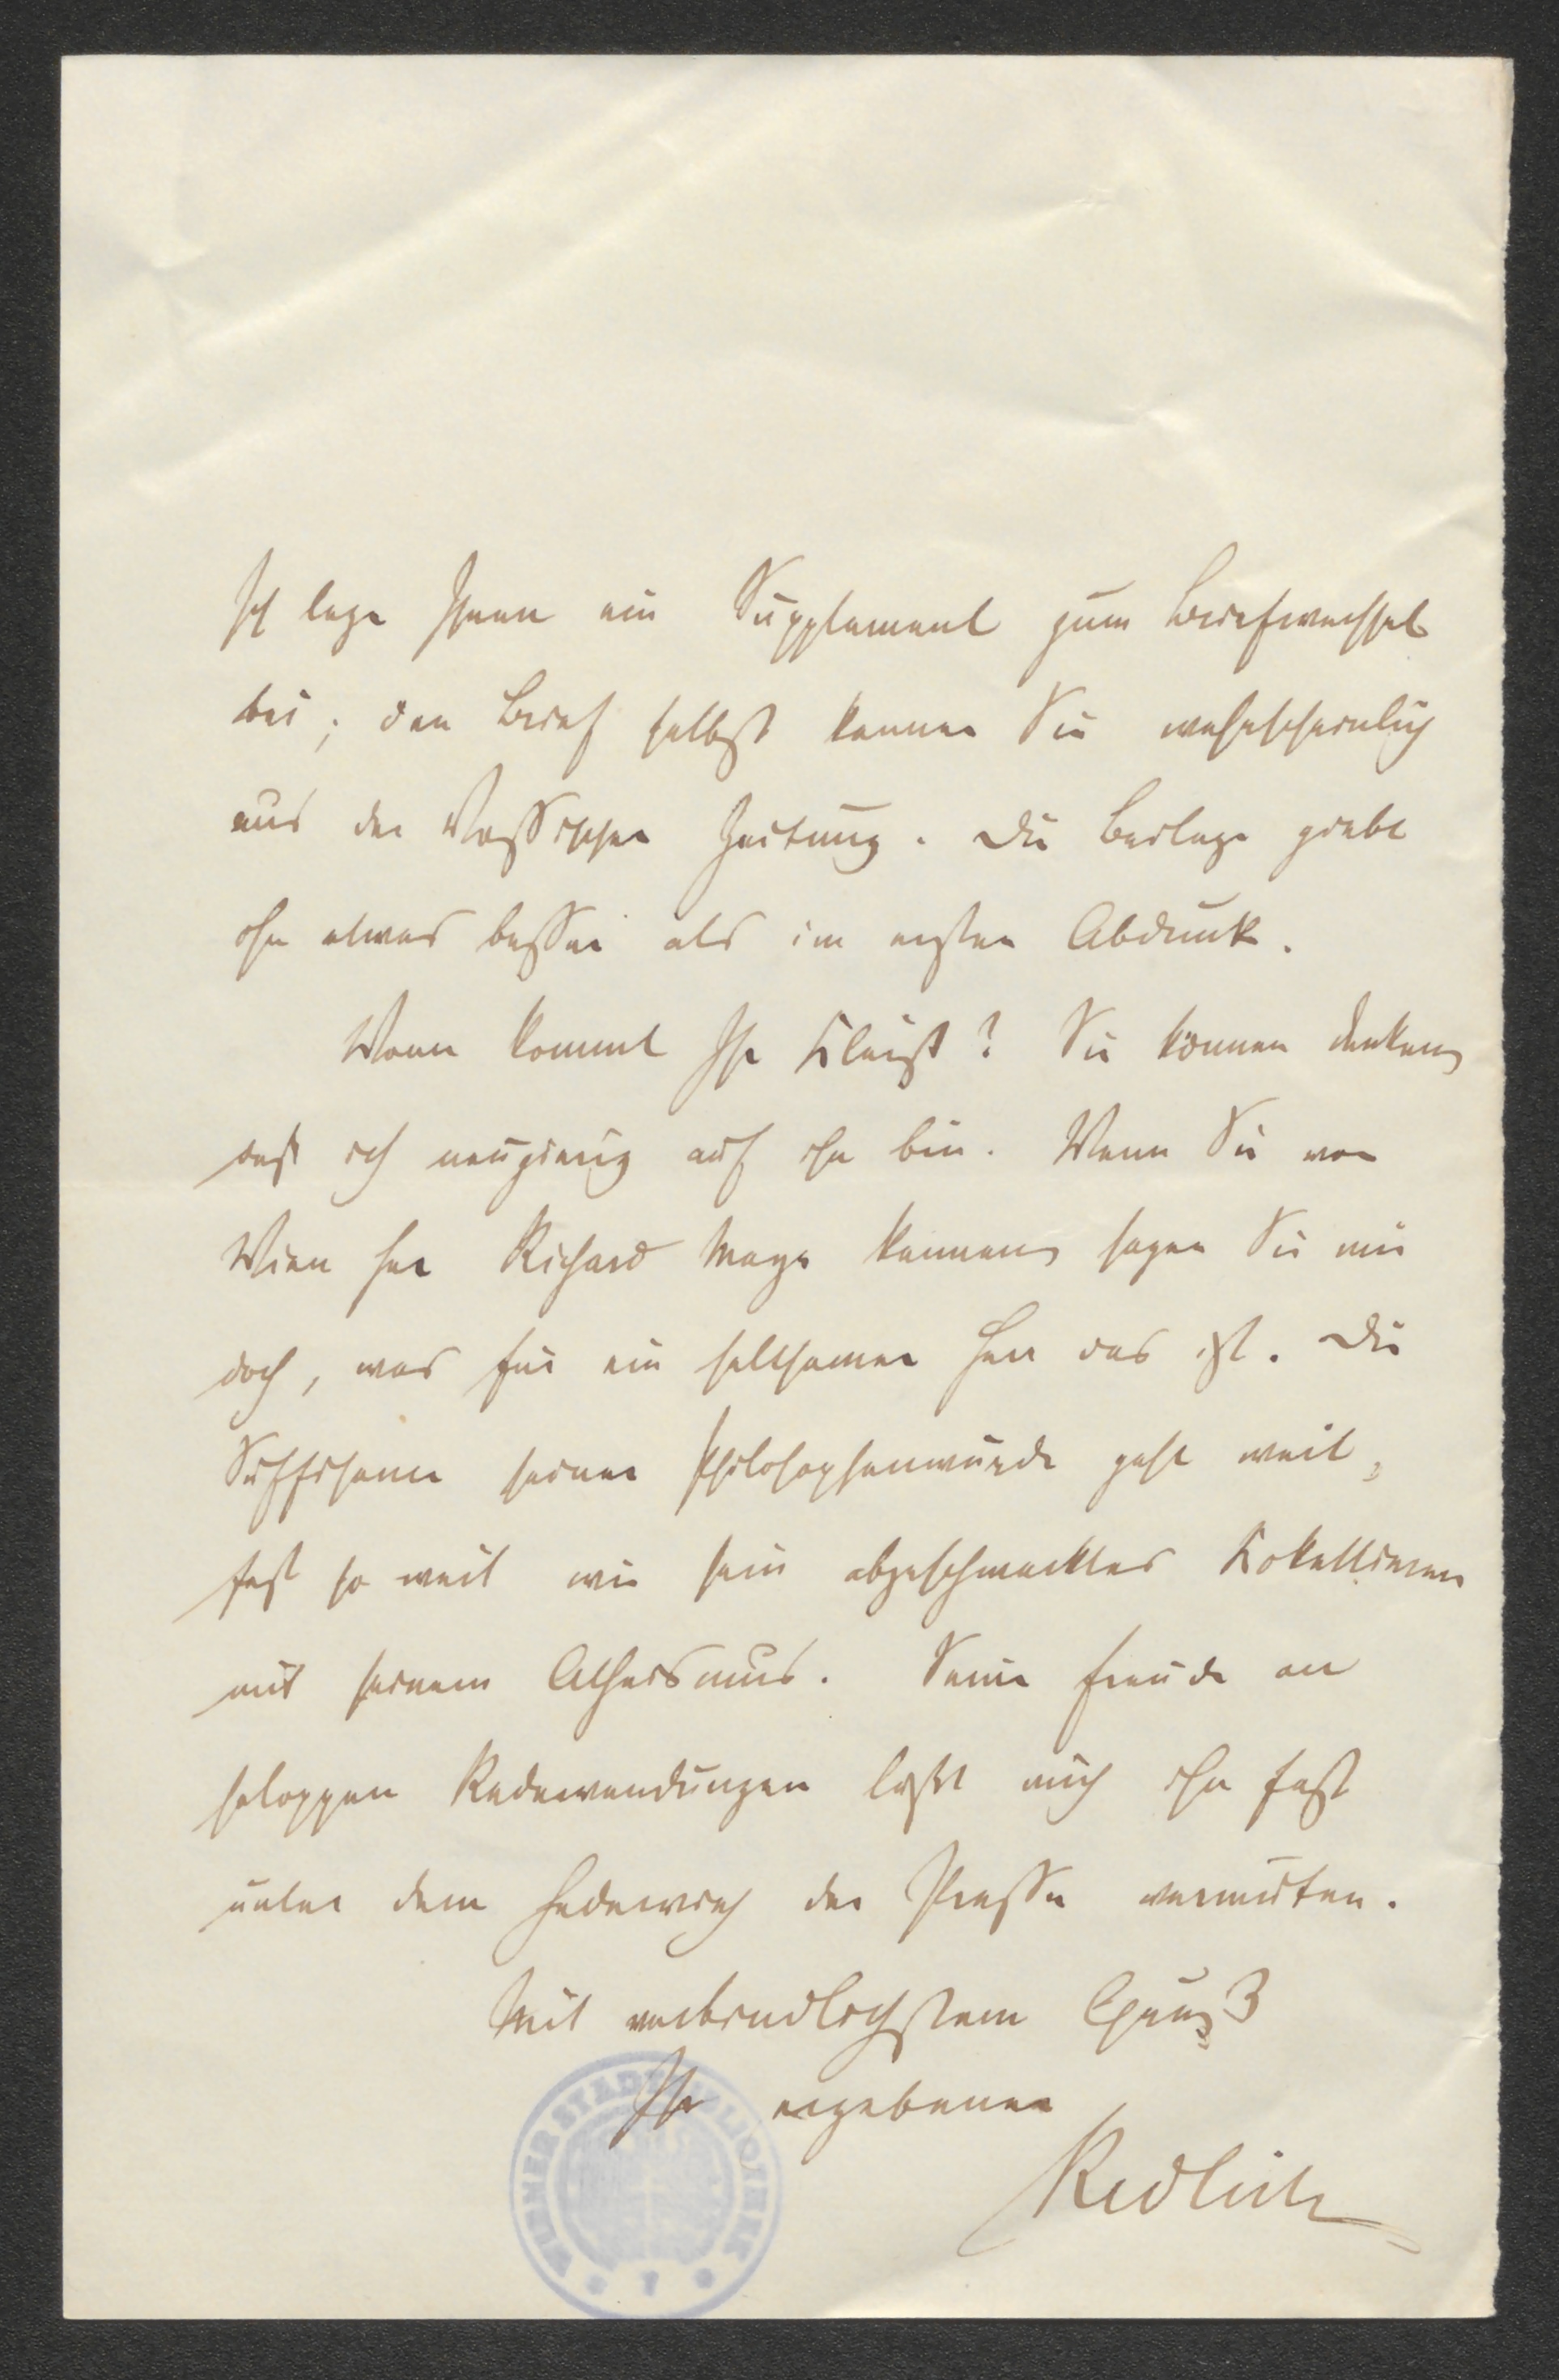 Ich lege Ihnen ein Supplement zum Briefwechsel
bei; den Brief selbst kennen Sie wahrscheinlich
aus der Vossischen Zeitung. Die Beilage giebt
ihn etwas besser als im ersten Abdruck.
Wann kommt Ihr Kleist? Sie können denken,
daß ich neugierig auf ihn bin. Wenn Sie von
Wien her Richard Mayr kennen, sagen Sie mir
doch, was für ein seltsamer Herr das ist. Die
Süffisance seiner Philosophenwürde geht weit,
fast so weit wie sein abgeschmacktes Kokettieren
mit seinem Atheismus. Seine Freude an
saloppen Redewendungen läßt mich ihn fast
unter dem Hederich der Presse vermuten.
Mit verbindlichstem Gruß
Ihr ergebener
Redlich
WIENER STADTBIBLIOTHEK